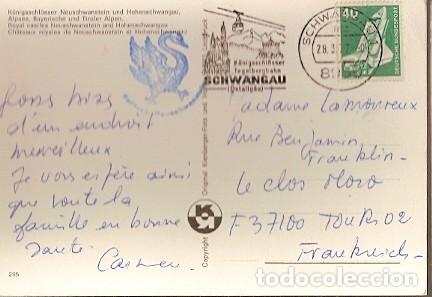 Königsschlösser Neuschwanstein und Hohenschwangau,
Alpsee, Bayerische und Tiroler Alpen.
Royal castles Neuschwanstein and Hohenschwangau
Châteaux royales de Neuschwanstein et Hohenschwangau
Königsschlösser
Tegelbergbahn
SCHWANGAU
(Ostallgäu)
SCHWANGAU
28.3.
40
DEUTSCHE BUNDESPOST
d'un endroit
merveilleux
Je vous espère ainsi
que toute la
famille en bonne
santé
Carmen
295
Original
Copyright
Madame Lamoureux
Rue Benjamin
Franklin -
le clos Moro
F 37100 TOURS 02
Frankreich -
todocoleccion.net